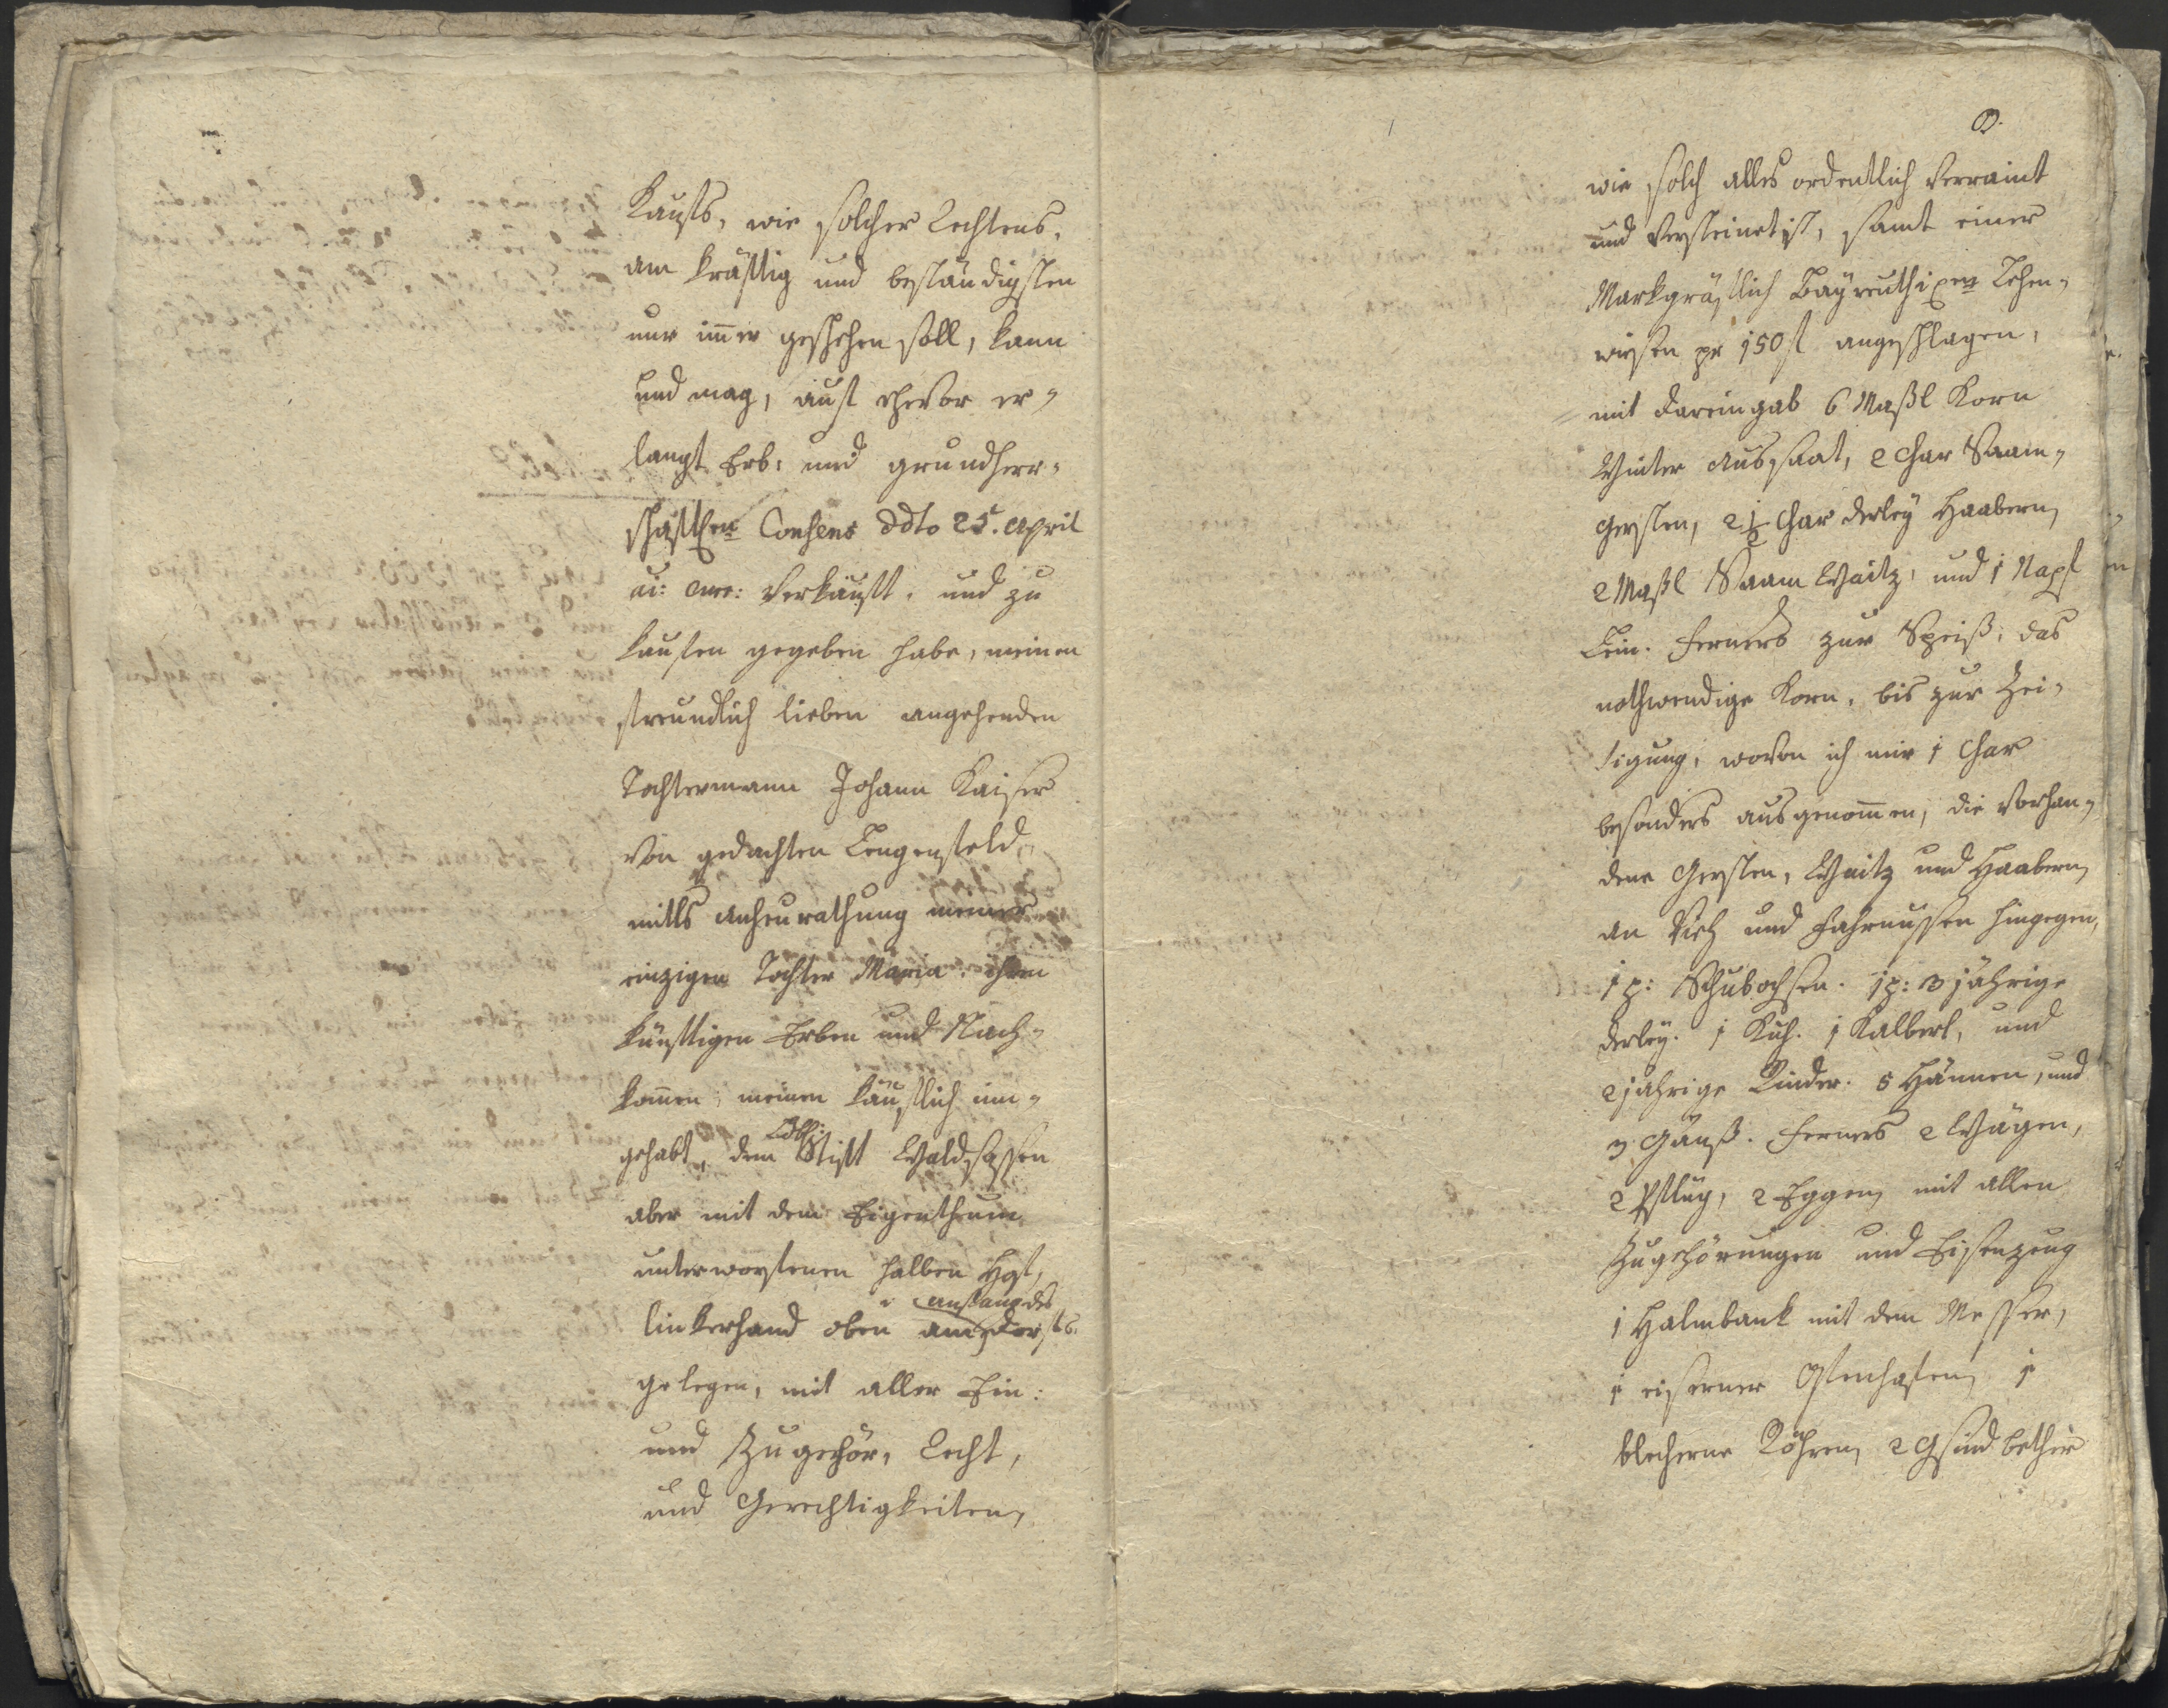 Kaufs, wie solcher Rechtens,
am kräftig und beständigsten
nur im̅er geschehen soll, kann
und mag, auf hievor er-
langt Erb: und grundherr-
schaftlen Consens ddto 25t. April
ai: curr: Verkauft, und zu
kaufen gegeben habe, meinen
freundlich lieben angehenden
Tochtermann Johann Kaiser
von gedachten Lengenfeld
mitls anheurathung meiner
einzigen Tochter Maria, ihren
künftigen Erben und Nach-
kom̅en, meinen käuflich inn-
gehabt, dem Löbl: Stift Waldsassen
aber mit dem Eigenthum
unterworfenen halben Hof,
linkerhand oben anfang des Dorfs
gelegen, mit aller Ein:
und Zugehör, Recht,
und Gerechtigkeiten,
wie solch alles ordentlich verraint
und Versteinet ist, samt einer
Markgräflich Bayreuthischen Lehen-
wiesen pr 150 f angeschlagen,
mit dareingab 6 Maßl Korn
Winter Aussaat, 2 Char Saam-
gersten, 2 1/2 Char derley Haabern,
2 Maßl Saam Waitz, und 1 Napf
Lein. Ferners zur Speiß, das
nothwendige Korn, bis zur Zei-
tigung, wovon ich mir 1 Char
besonders ausgenom̅en, die Vorhan-
dene Gersten, Waitz und Haabern,
an Vieh und Fahrnussen hingegen,
1 p: Schubochsen. 1 p: 3 jährige
derley. 1 Kuh. 1 Kalberl, und
2 jahrige Rinder. 5 Hännen, und
3 Gänß. Ferners 2 Wägen,
2 Pflüg, 2 Eggen, mit allen
Zugehörungen und Eisenzeug
1 Halmbank mit dem Messer,
1 eiserner Ofenhafen, 1
blecherne Röhren, 2 Gsindbether